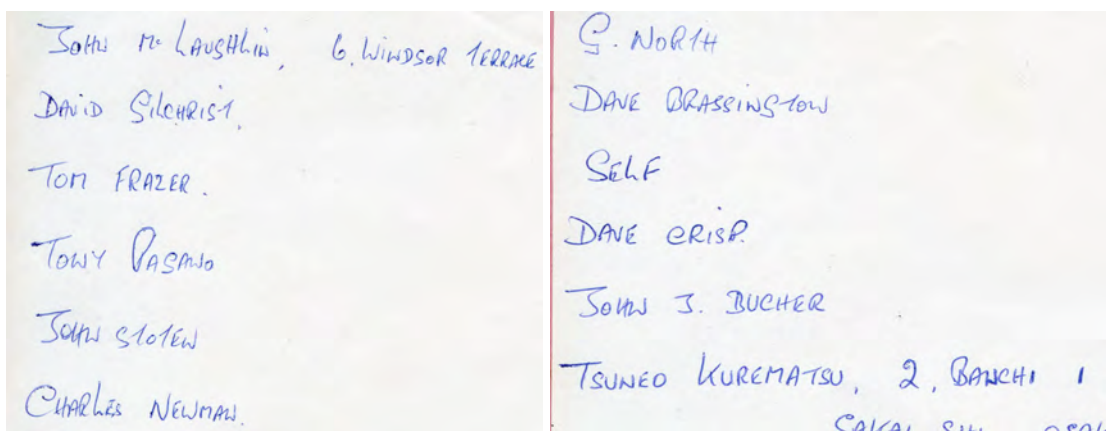 John McLaughlin, 6. Windsor Terrace
David Gilchrist.
Tom Frazer.
Tony Pagano
John Stoten
Charles Newman.
G. North
Dave Brassington
Self
Dave Crisp.
John J. Bucher
Tsuneo Kurematsu, 2, Banchi 1
Sakai Shi